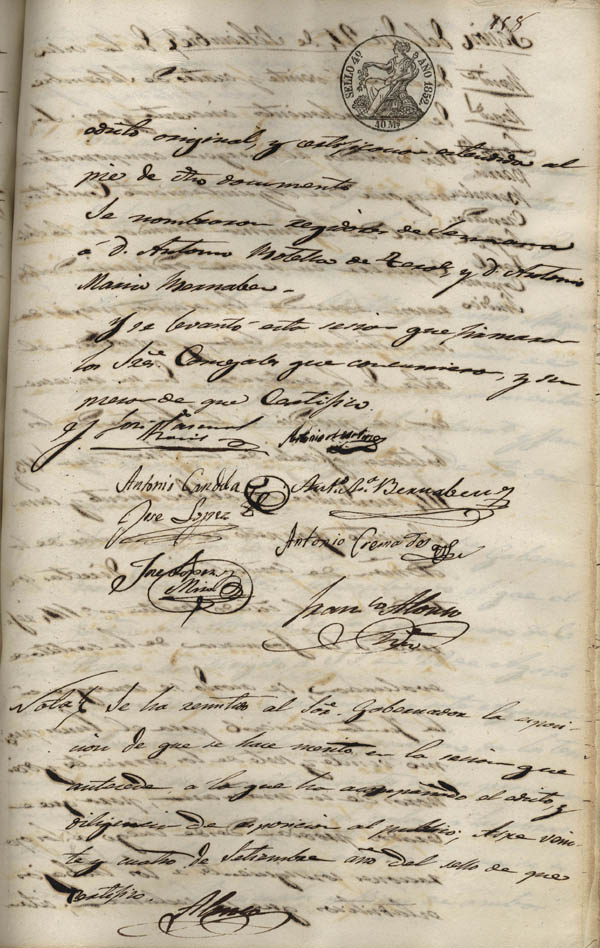 158
SELLO 4º AÑO 1852.
40 Ms
edicto original, y certificacion estendida al
pie de dho documento
Se nombraron regidores de Semana
á D. Antonio Motella de y D. Antonio
Maria Bernabeu.
Y se levantó esta sesion que firmaron
los Sres. Concejales que concurrieron, y su
pieron de que Certifico.
José Pascual
Antonio Martinez
Antonio Candela
Antº Mª Bernabeu
Jose Lopez
Antonio Cremades
Jose Lopez
Mira
Franco Alonso
Srio
Nota Se ha remitido al Sor. Gobernador la esposi
cion de que se hace merito en la sesion que
antecede, a la que ha acompañado el edicto y
diligencia de esposicion al publico; Aspe vein
te y cuatro de Setiembre año del sello de que
Certifico.
Alonso